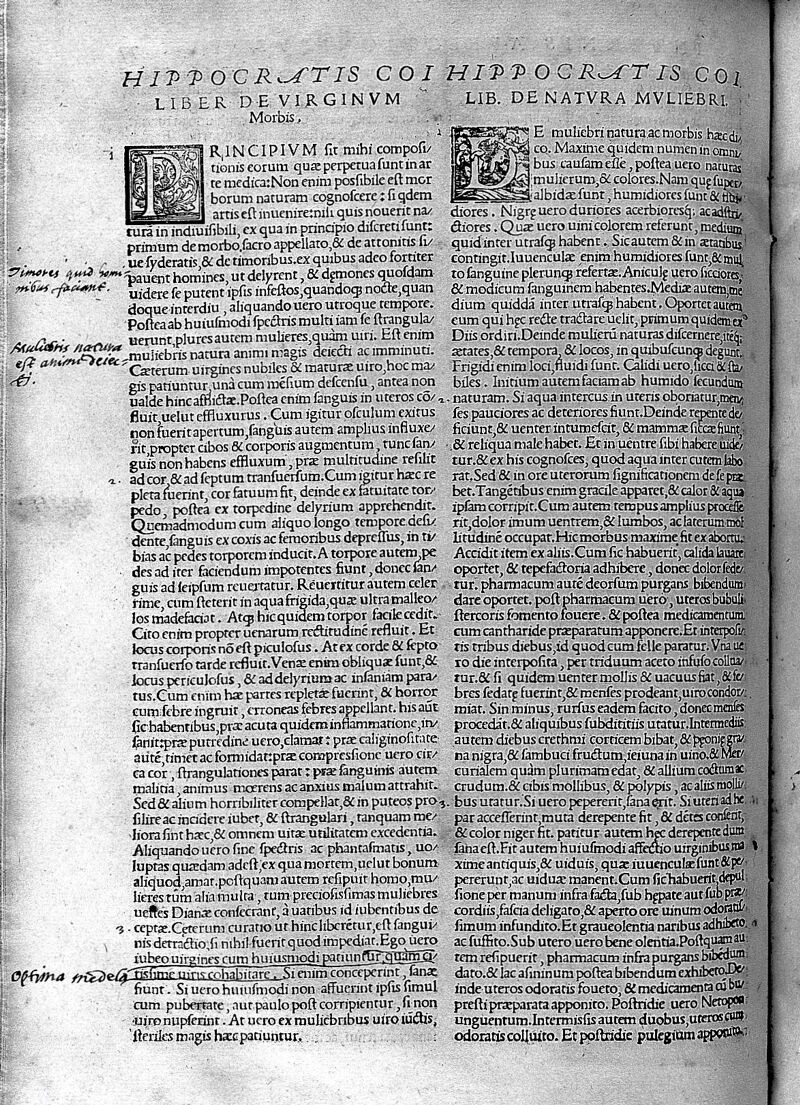 HIPPOCRATIS COI
LIBER DE VIRGINVM
Morbis,
1
PRINCIPIVM sit mihi composi/
tionis eorum quæ perpetua sunt in ar
te medica: Non enim possibile est mor
borum naturam cognoscere: si qdem
artis est inuenire: nisi quis nouerit na/
turā in indiuisibili, ex qua in principio discreti sunt:
primum de morbo, sacro appellato, & de attonitis si/
ue syderatis, & de timoribus. ex quibus adeo fortiter
Timores quid homi
pauent homines, ut delyrent, & dęmones quosdam
nibus faciant.
uidere se putent ipsis infestos, quandoq; nocte, quan
doque interdiu, aliquando uero utroque tempore.
Postea ab huiusmodi spectris multi iam se strangula/
uerunt, plures autem mulieres, quàm uiri. Est enim
Muliebris natura
muliebris natura animi magis deiecti ac imminuti.
est animi deiec
Cæterum virgines nubiles & maturæ uiro, hoc ma/
ti.
gis patiuntur, unà cum mēsium descensu, antea non
ualde hinc afflictæ. Postea enim sanguis in uteros cō/
fluit, uelut effluxurus. Cum igitur osculum exitus
non fuerit apertum, sanguis autem amplius influxe/
rit, propter cibos & corporis augmentum, tunc san/
guis non habens effluxum, præ multitudine resilit
ad cor, & ad septum transuersum. Cum igitur hæc re
2.
pleta fuerint, cor fatuum fit, deinde ex fatuitate tor/
pedo, postea ex torpedine delyrium apprehendit.
Quemadmodum cum aliquo longo tempore desi/
dente, sanguis ex coxis ac femoribus depressus, in ti/
bias ac pedes torporem inducit. A torpore autem, pe
des ad iter faciendum impotentes fiunt, donec san/
guis ad seipsum reuertatur. Reuertitur autem celer
rime, cum steterit in aqua frigida, quæ ultra malleo/
los madefaciat. Atq; hic quidem torpor facile cedit.
Cito enim propter uenarum rectitudinē refluit. Et
locus corporis nō est piculosus. At ex corde & septo
transuerso tarde refluit. Venæ enim obliquæ sunt, &
locus periculosus, & ad delyrium ac insaniam para/
tus. Cum enim hæ partes repletæ fuerint, & horror
cum febre ingruit, erroneas febres appellant. his aūt
sic habentibus, præ acuta quidem inflammatione, in/
sanit: præ putredine uero, clamat: præ caliginositate
autē, timet ac formidat: præ compressione uero cir/
ca cor, strangulationes parat: præ sanguinis autem
malitia, animus mœrens ac anxius malum attrahit.
Sed & alium horribiliter compellat, & in puteos pro
silire ac incidere iubet, & strangulari, tanquam me/
liora sint hæc, & omnem uitæ utilitatem excedentia.
Aliquando uero sine spectris ac phantasmatis, uo/
luptas quædam adest, ex qua mortem, uelut bonum
aliquod, amat. postquam autem resipuit homo, mu/
lieres tum alia multa, tum preciosissimas muliebres
uestes Dianæ consecrant, à uatibus id iubentibus de
3.
ceptæ. Ceterum curatio ut hinc liberetur, est sangui/
nis detractio, si nihil fuerit quod impediat. Ego uero
iubeo uirgines cum huiusmodi patiuntur, quam ci/
Optima medela
tissime uiris cohabitare. Si enim conceperint, sanæ
fiunt. Si uero huiusmodi non affuerint ipsis simul
cum pubertate, aut paulo post corripientur, si non
uiro nupserint. At uero ex muliebribus uiro iūctis,
steriles magis hæc patiuntur.
HIPPOCRATIS COI
LIB. DE NATVRA MVLIEBRI.
1
DE muliebri natura ac morbis hæc di/
co. Maxime quidem numen in omni/
bus causam esse, postea uero naturas
mulierum, & colores. Nam quę super
albidæ sunt, humidiores sunt & flui
diores. Nigrę uero duriores acerbioresq; ac adstri
ctiores. Quæ uero uini colorem referunt, medium
quid inter utrasq; habent. Sic autem & in ætatibus
contingit. Iuuenculæ enim humidiores sunt, & mul
to sanguine plerunq; refertæ. Aniculę uero sicciores,
& modicum sanguinem habentes. Mediæ autem, me
dium quiddā inter utrasq; habent. Oportet autem
eum qui hęc recte tractare uelit, primum quidem ex
Diis ordiri. Deinde mulierū naturas discernere, itēq;
ætates, & tempora, & locos, in quibuscunq; degunt.
Frigidi enim loci, fluidi sunt. Calidi uero, sicci & sta/
biles. Initium autem faciam ab humido secundum
2.
naturam. Si aqua intercus in uteris oboriatur, men/
ses pauciores ac deteriores fiunt. Deinde repente de/
ficiunt, & uenter intumescit, & mammæ siccæ fiunt,
& reliqua male habet. Et in uentre sibi habere uide/
tur. & ex his cognosces, quod aqua inter cutem labo
rat. Sed & in ore uterorum significationem de se præ
bet. Tangētibus enim gracile apparet, & calor & aqua
ipsam corripit. Cum autem tempus amplius processe
rit, dolor imum uentrem, & lumbos, ac laterum mol
litudinē occupat. Hic morbus maxime fit ex abortu.
Accidit item ex aliis. Cum sic habuerit, calida lauare
oportet, & tepefactoria adhibere, donec dolor sede/
tur. pharmacum autē deorsum purgans bibendum
dare oportet. post pharmacum uero, uteros bubuli
stercoris fomento fouere. & postea medicamentum
cum cantharide præparatum apponere. Et interposi
tis tribus diebus, id quod cum felle paratur. Vna ue
ro die interposita, per triduum aceto infuso collua/
tur. & si quidem uenter mollis & uacuus fiat, & fe/
bres sedatę fuerint, & menses prodeant, uiro condor/
miat. Sin minus, rursus eadem facito, donec menses
procedāt. & aliquibus subdititiis utatur. Intermediis
autem diebus crethmi corticem bibat, & pęonię gra
na nigra, & sambuci fructum, ieiuna in uino. & Mer/
curialem quàm plurimam edat, & allium coctum ac
crudum. & cibis mollibus, & polypis, ac aliis molli
3.
bus utatur. Si uero pepererit, sana erit. Si uteri ad he
par accesserint, muta derepente fit, & dētes consert,
& color niger fit. patitur autem hęc derepente dum
sana est. Fit autem huiusmodi affectio uirginibus ma
xime antiquis, & uiduis, quæ iuuenculæ sunt & pe/
pererunt, ac uiduæ manent. Cum sic habuerit, depul
sione per manum infra facta, sub hepate aut sub præ/
cordiis, fascia deligato, & aperto ore uinum odoratis/
simum infundito. Et graueolentia naribus adhibeto,
ac suffito. Sub utero uero bene olentia. Postquam au
tem resipuerit, pharmacum infra purgans bibēdum
dato. & lac asininum postea bibendum exhibeto. De/
inde uteros odoratis foueto, & medicamenta cū bu/
presti præparata apponito. Postridie uero Netopon
unguentum. Intermissis autem duobus, uteros cum
odoratis colluito. Et postridie pulegium apponito.